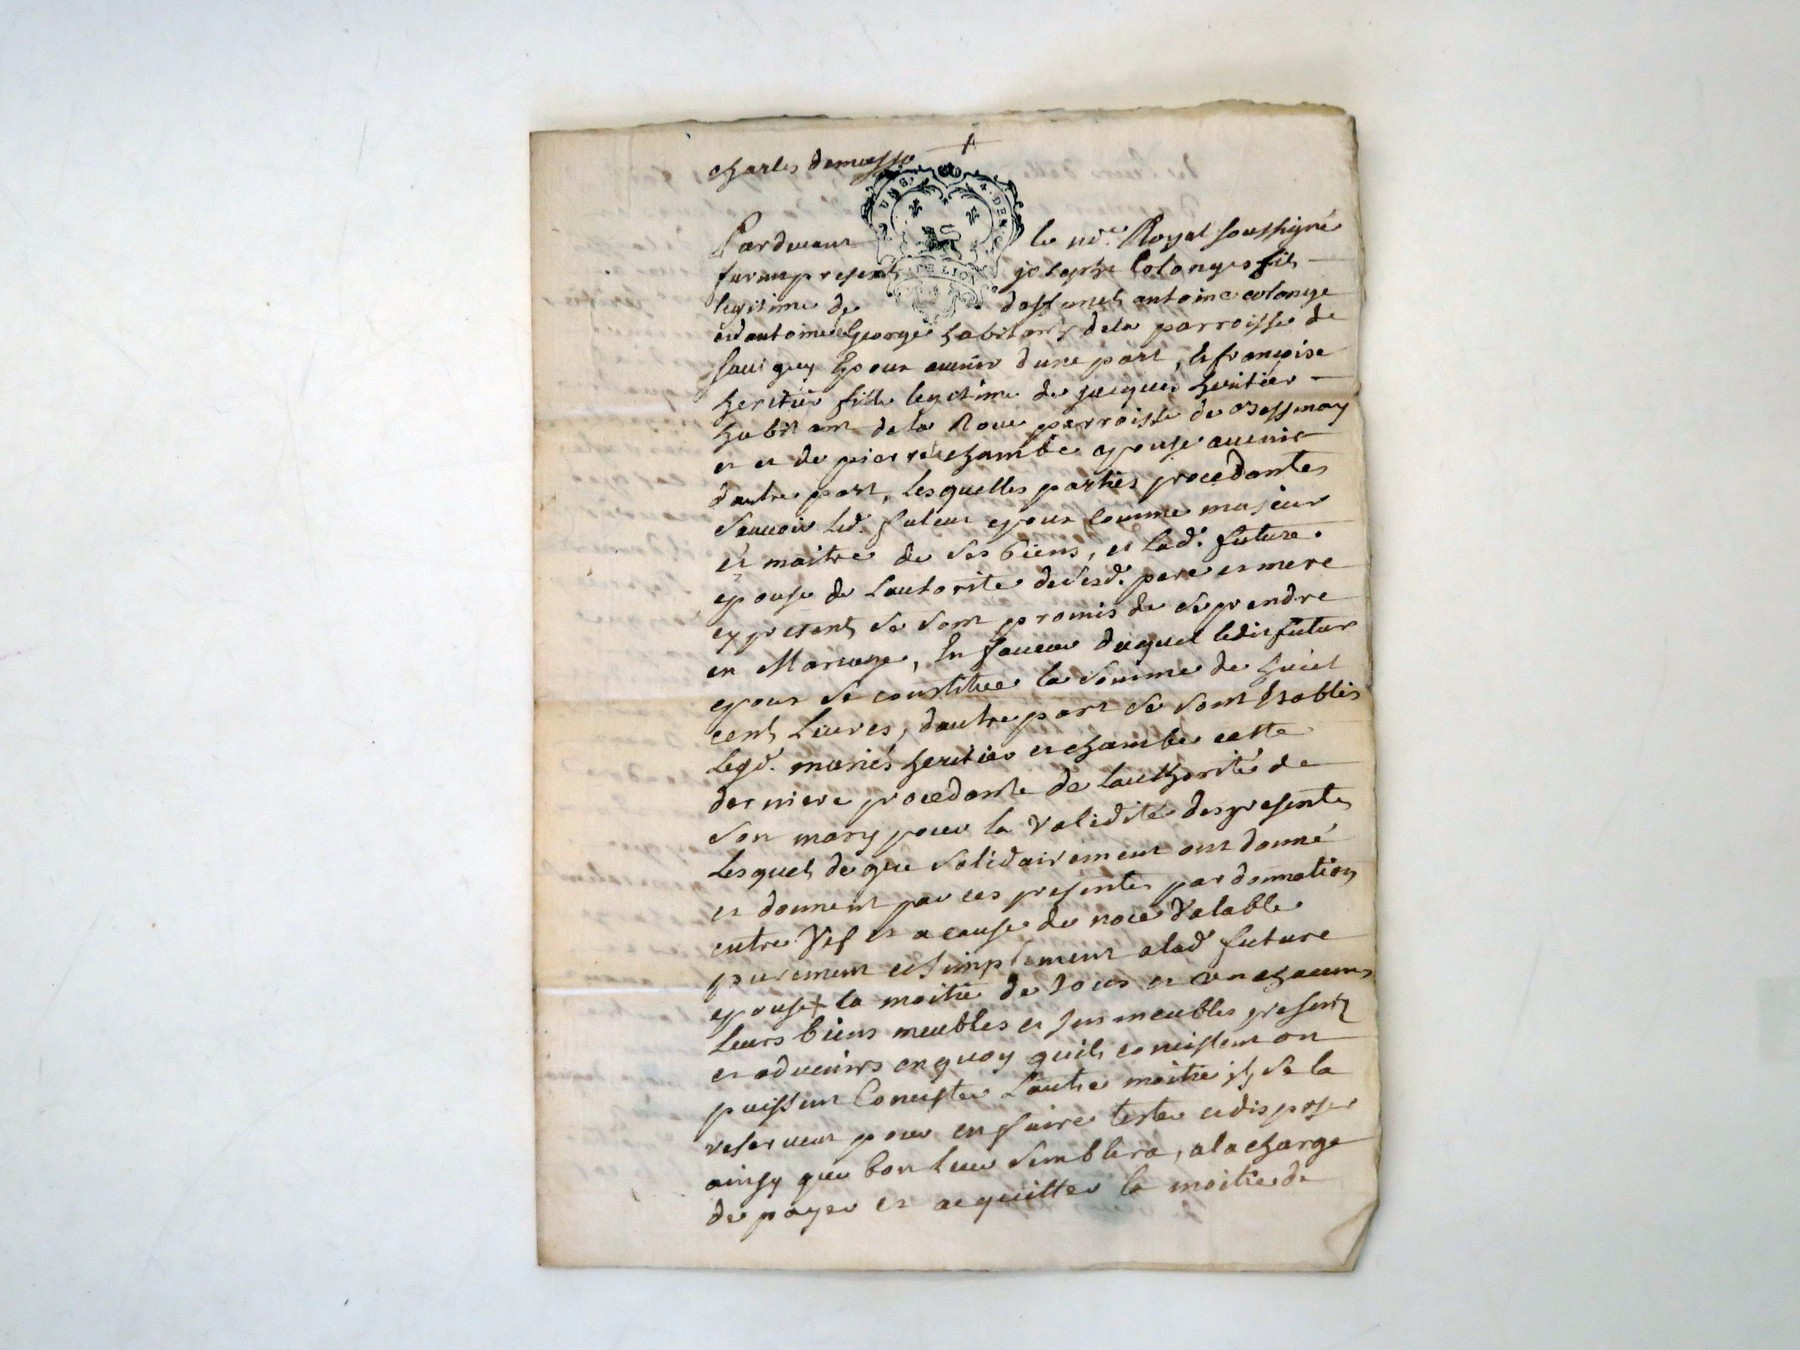 charles
Pardevant le no.re Royal soussigné
furent presents joseph Colonges fils
legitime de deffunct antoine colonge
et d'antoinette George habitants de la parroisse de
Savigny Epoux avenir d'une part, Et françoise
heritier fille legitime de jacques heritier
habitant de la Roue parroisse de Bessenay
et et de pierrette chambe epouse avenir
d'autre part, Lesquelles parties procedantes
Sauoir led. futeur epoux Comme majeur
et maitre de Ses biens, et Lad. future
epouse de Lautorite de Sesd. pere et mere
cy presents Se Sont promis de Se prendre
en Mariage, En faueur duquel ledit futur
epoux Se constitue la Somme de huict
cents Liures, d'autre part Se Sont Etablis
Lesd. mariés heritier et chambe cette
derniere procedante de Lauthorité de
Son mary pour la Validité des presentes
Lesquels de gré Solidairement ont donné
et donnent par ces presentes par donnation
entre Vif et a cause de noce Valable
purement et Simplement a lad. future
epouse la moitié de tous et un chacuns
Leurs biens meubles et Jmmeubles presents
et aduenirs en quoy quils consistent ou
puissent Consister Lautre moitié ils Se la
reseruent pour en faire tester et disposer
ainsy que bon Leur Semblera, a la charge
de payer et acquitter la moitié de